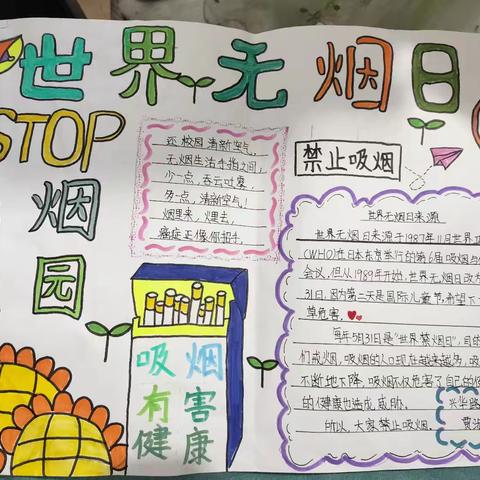 世界无烟日
STOP
烟园
还校园清新空气,
无烟生活手指之间,
少一点,吞云吐雾,
多一点,清新空气!
烟里来,烟里去,
癌症正像你招手。
禁止吸烟
世界无烟日来源
世界无烟日来源于1987年11月世界卫
(WHO)在日本东京举行的第6届吸烟与
会议,但从1989年开始,世界无烟日改为
31日,因为第二天是国际儿童节,希望下
草危害。
每年5月31日是“世界禁烟日”,目的
们戒烟,吸烟的人口现在越来越多,吸
不断地下降,吸烟不仅危害了自己的
的健康也造成威胁。
所以,大家禁止吸烟。
兴华路
贾
吸烟
有害
健康